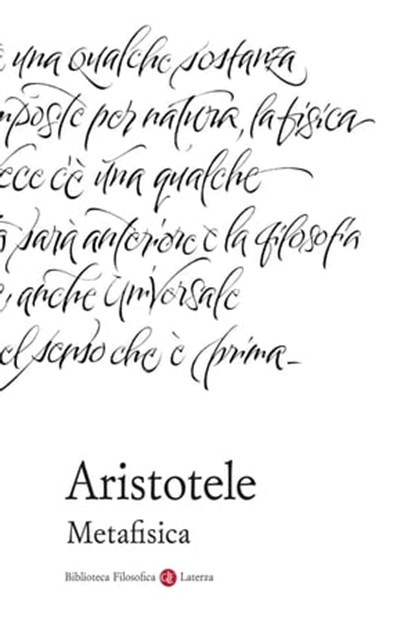 è una qualche sostanza
mposte per natura, la fisica
ece c'è una qualche
sarà anteriore e la filosofia
e, anche universale
el senso che è prima_
Aristotele
Metafisica
Biblioteca Filosofica Laterza